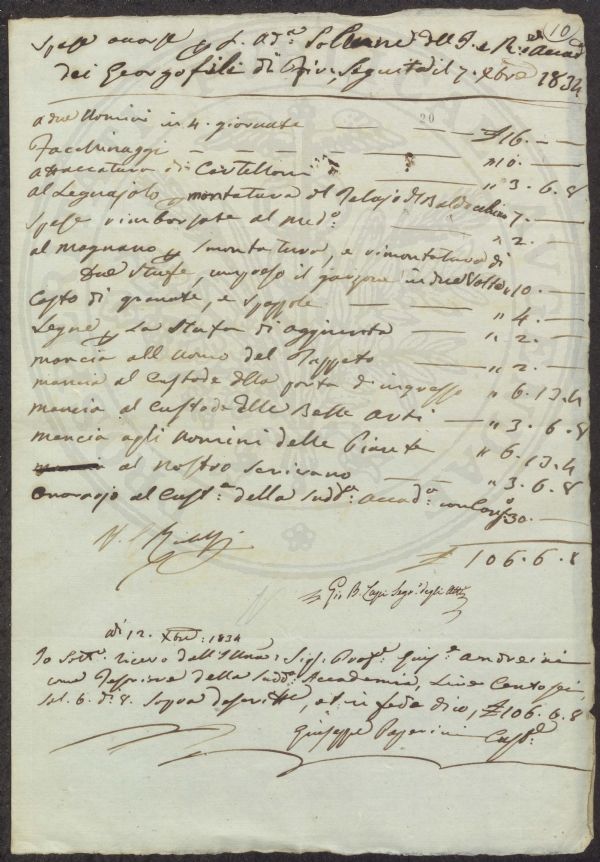 10
Spese occorse p. l'Ad.za Solenne dell'I. e R. Accad.a
dei Georgofili di Fir., seguita il 7. Xbre 1834
a due Uomini in 4. giornate — 20 — £ 16. —
Facchinaggi — — — " 10. —
attaccatura di Cartelloni — " 3. 6. 8
al Legnajolo p. montatura del Palajo di Baldacchino 7. —
Spese rimborsate al med.o — " 2. —
al Magnano p. smontatura, e rimontatura di
due Stufe, compreso il garzone in due volte " 10. —
Costo di granate, e spazzole — " 4. —
Legne p. la Stufa di aggiunta — " 2. —
mancia all'Uomo del Tappeto — " 2. —
mancia al Custode della porta d'ingresso " 6. 13. 4
mancia al Custode delle Belle Arti — " 3. 6. 8
mancia agli Uomini delle Piante " 6. 13. 4
al nostro Scrivano — " 3. 6. 8
Onorario al Cust.e della Sudd.a Accad.a 30. —
£ 106. 6. 8
Gio B. Lapi Segr.o degli Atti
adì 12. Xbre: 1834
Io Sott.o ricevo dall'Illmo: Sig. Prof.e Gius.e Andreini
Tesoriere della Sudd.a Accademia, Lire Centosei,
sol. 6. d. 8. sopra descritte, et in fede dico, £ 106. 6. 8
Giuseppe Passerini Cust.e